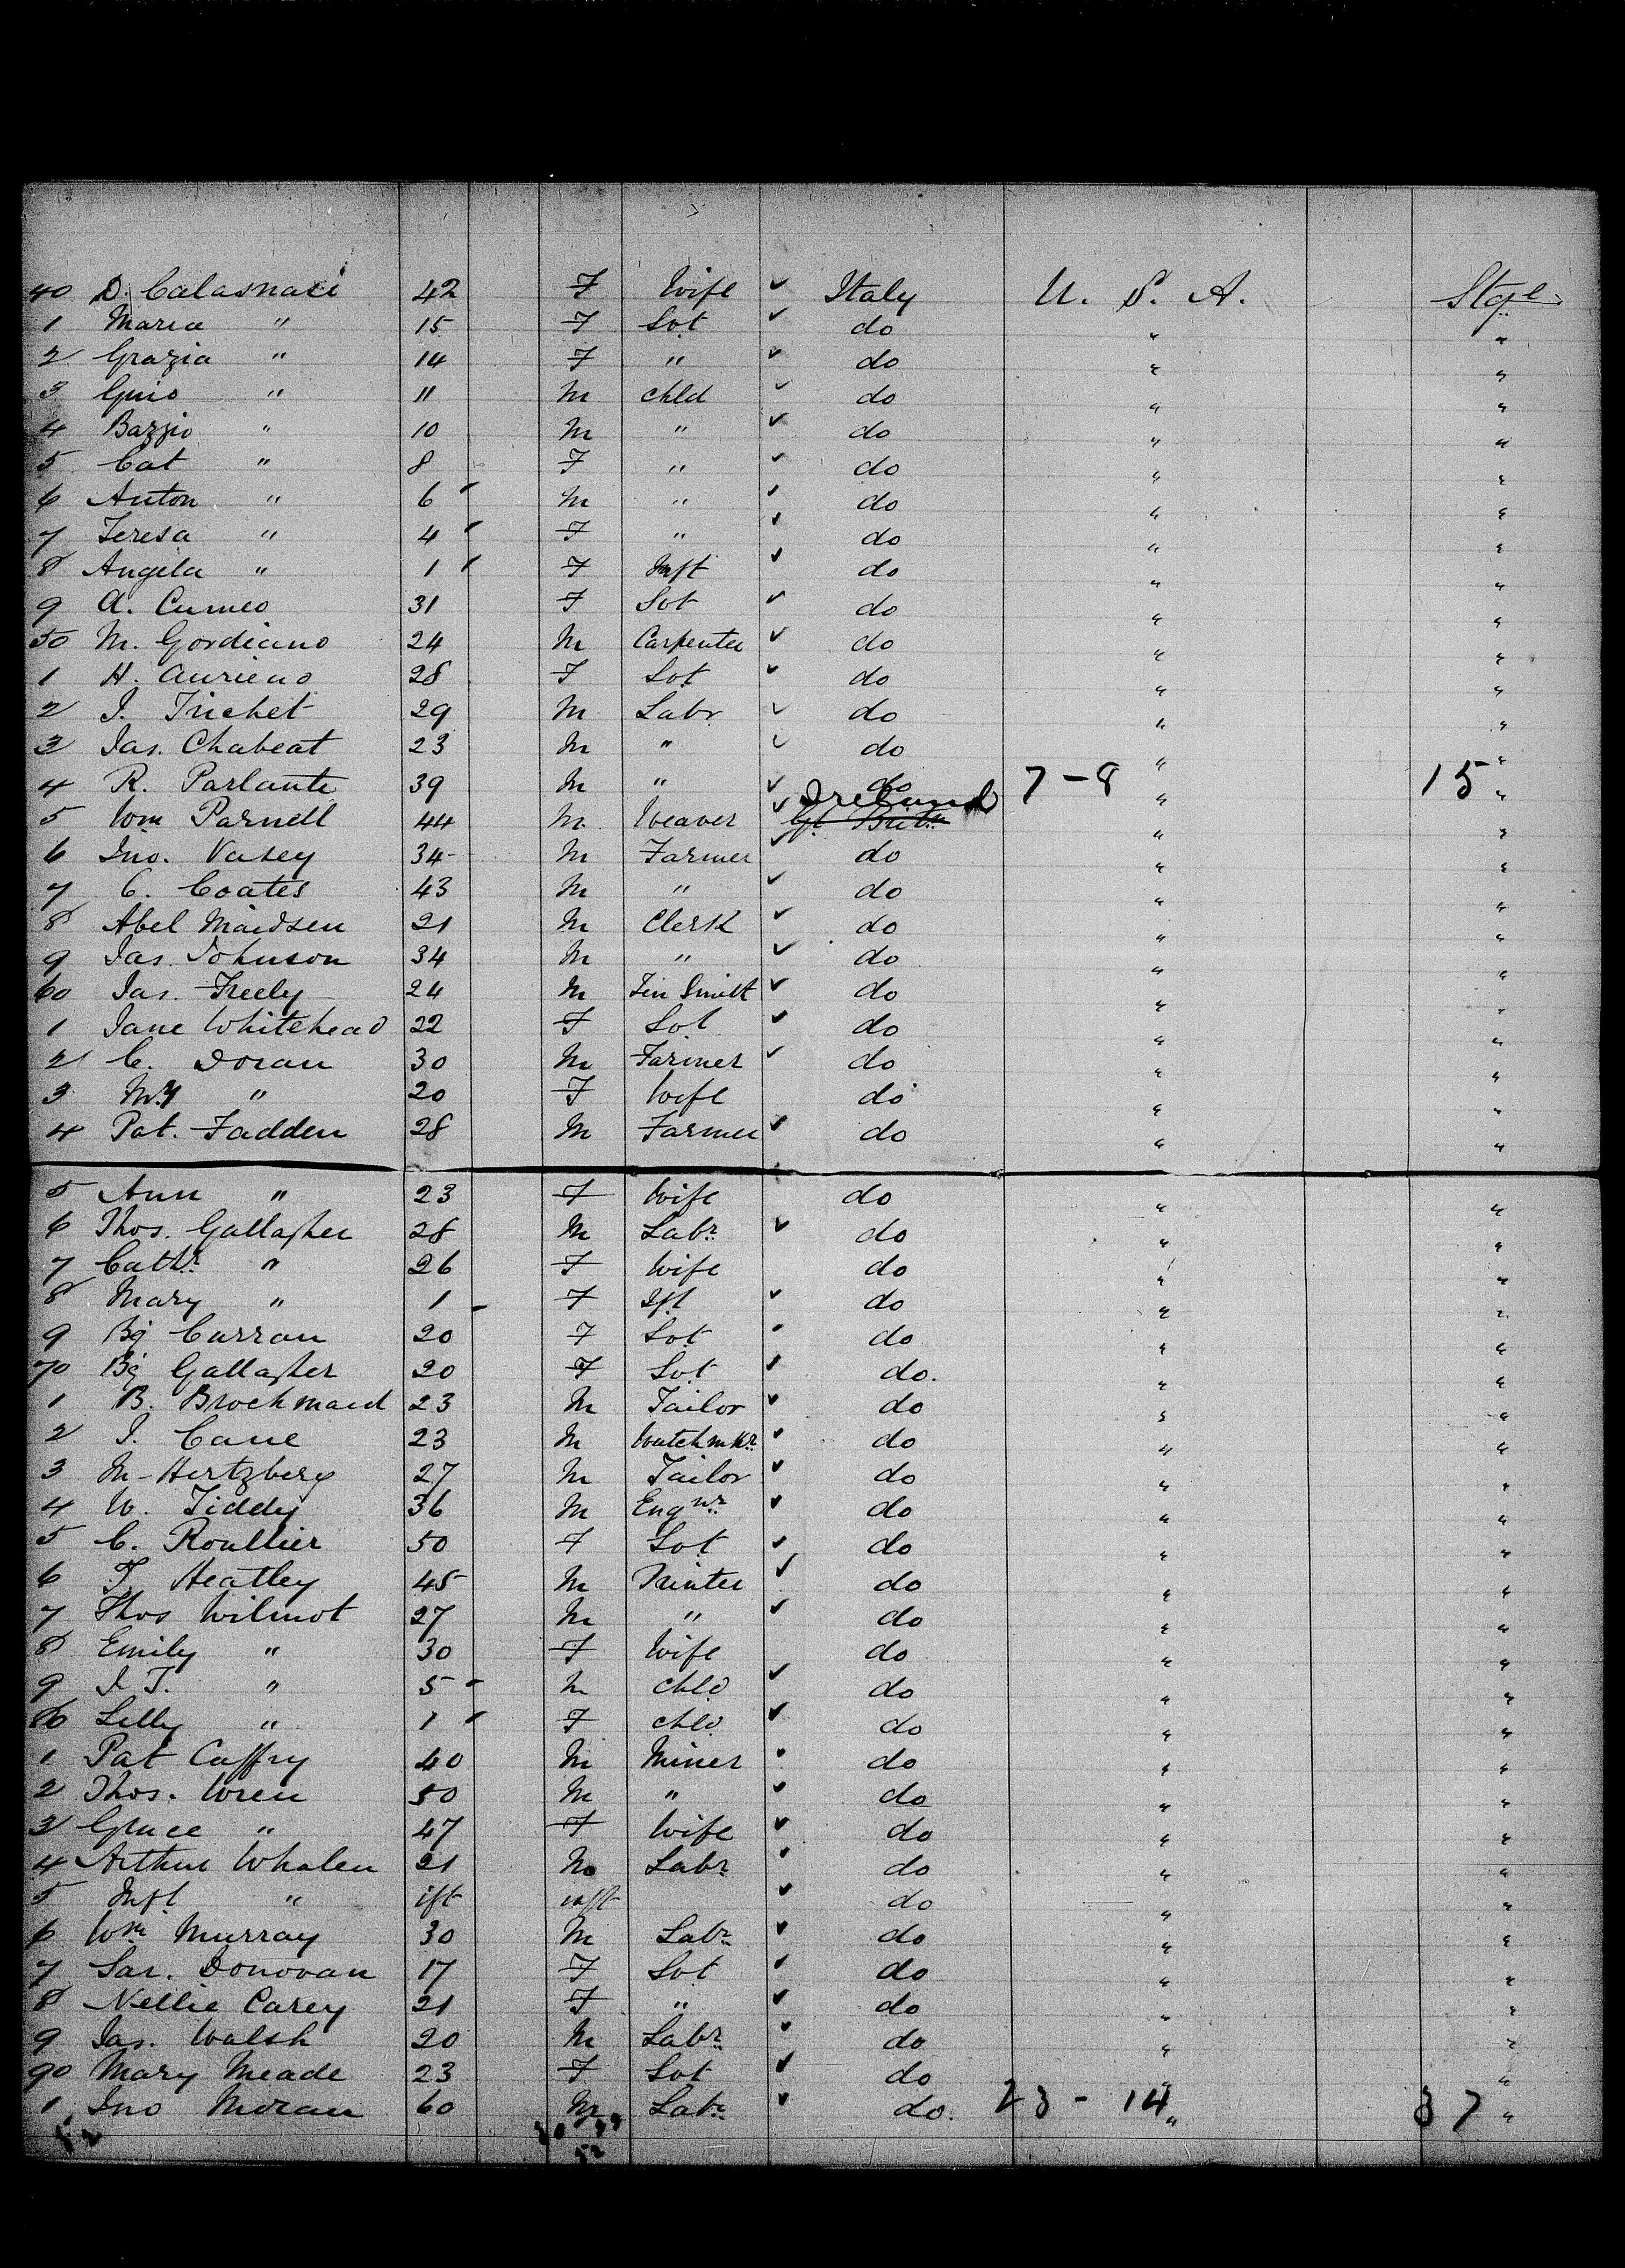 40 D. Calasnaci 42 F Wife ✓ Italy U. S. A. Stge
1 Maria " 15 F Spt ✓ do " "
2 Grazia " 14 F " ✓ do " "
3 Guio " 11 M Chld ✓ do " "
4 Bazzio " 10 M " ✓ do " "
5 Cat " 8 F " ✓ do " "
6 Anton " 6 M " ✓ do " "
7 Teresa " 4 F " ✓ do " "
8 Angela " 1 F Inft ✓ do " "
9 A. Cumeo 31 F Spt ✓ do " "
50 M. Gordiano 24 M Carpenter ✓ do " "
1 H. Aurieno 28 F Spt ✓ do " "
2 J. Trichet 29 M Labr ✓ do " "
3 Jas. Chabeat 23 M " ✓ do " "
4 R. Parlante 39 M " ✓ do 7-8 " 15 "
5 Wm Parnell 44 M Weaver ✓ Ireland Gt Britn " "
6 Jno. Vasey 34 M Farmer ✓ do " "
7 C. Coates 43 M " ✓ do " "
8 Abel Maidsen 21 M Clerk ✓ do " "
9 Jas. Johnson 34 M " ✓ do " "
60 Jas. Freely 24 M Tin Smith ✓ do " "
1 Jane Whitehead 22 F Spt ✓ do " "
2 C. Doran 30 M Farmer ✓ do " "
3 My " 20 F Wife do " "
4 Pat. Fadden 28 M Farmer ✓ do " "
5 Ann " 23 F Wife do " "
6 Thos. Gallagher 28 M Labr ✓ do " "
7 Cathr " 26 F Wife do " "
8 Mary " 1 F Ift ✓ do " "
9 Bg Curran 20 F Spt ✓ do " "
70 Bg Gallagher 20 F Spt ✓ do. " "
1 B. Brochmaid 23 M Tailor ✓ do " "
2 J. Cane 23 M Watchmkr ✓ do " "
3 M. Hertzberg 27 M Tailor ✓ do " "
4 W. Tiddy 36 M Engnr ✓ do " "
5 C. Roullier 50 F Spt ✓ do " "
6 T. Heatley 45 M Printer ✓ do " "
7 Thos Wilmot 27 M " ✓ do " "
8 Emily " 30 F Wife do " "
9 J. T. " 5 M Chld ✓ do " "
80 Lilly " 1 F Chld ✓ do " "
1 Pat Caffry 40 M Miner ✓ do " "
2 Thos. Wren 50 M " ✓ do " "
3 Grace " 47 F Wife ✓ do " "
4 Arthur Whalen 21 M Labr ✓ do " "
5 Inft " ift inft ✓ do " "
6 Wm Murray 30 M Labr ✓ do " "
7 Sar. Donovan 17 F Spt ✓ do " "
8 Nellie Carey 21 F " ✓ do " "
9 Jas. Walsh 20 M Labr ✓ do " "
90 Mary Meade 23 F Spt ✓ do " "
1 Jno Moran 60 M Labr ✓ do. 23-14 " 37 "
52